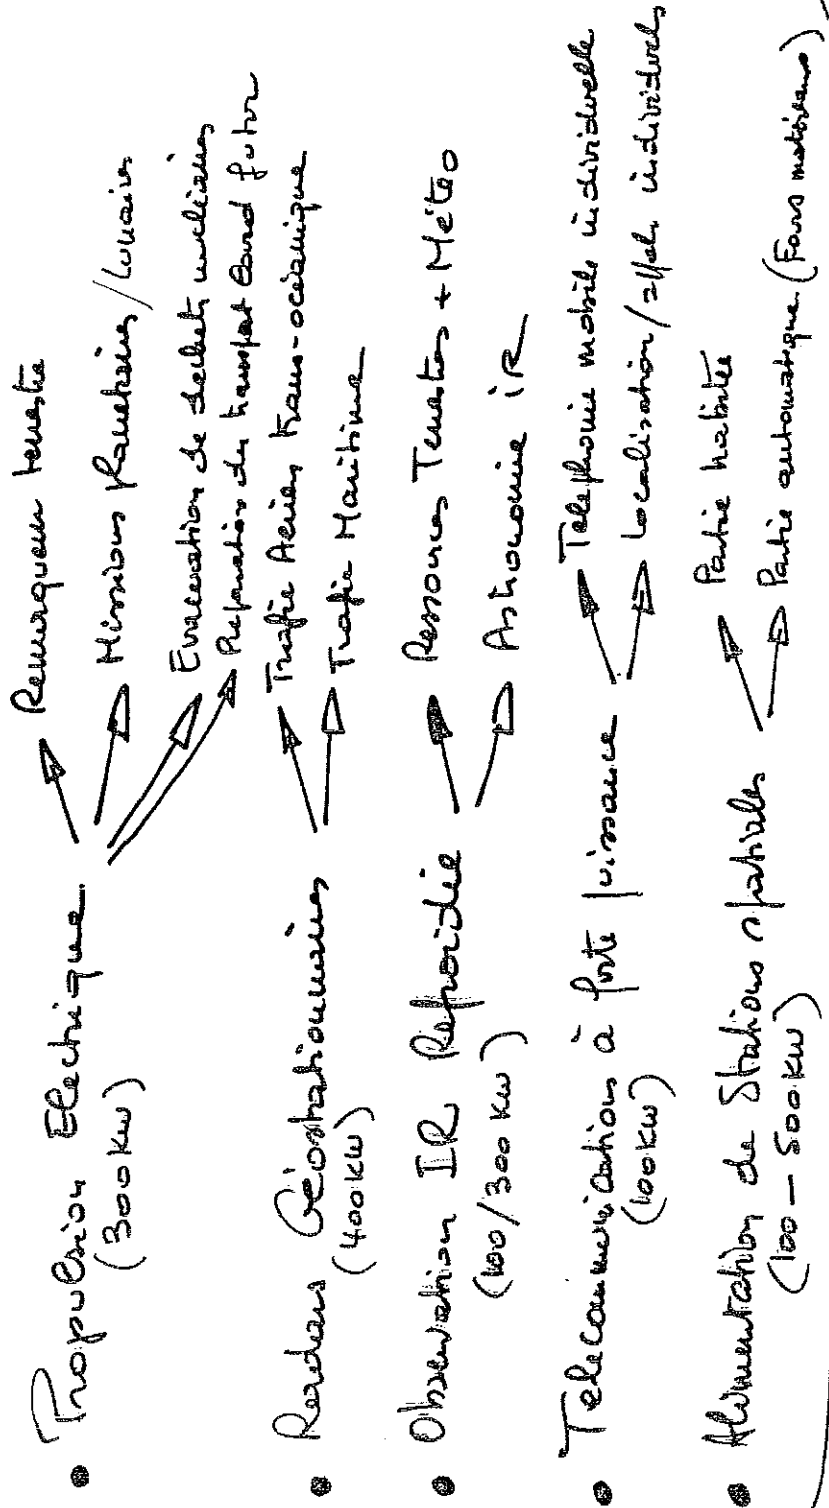 • Propulsion Electrique
(300 kW)
Remorqueur terrestre
Missions planétaires/lunaires
Evacuation de déchets nucléaires
Préparation du transport lourd futur
• Radars Géostationnaires
(400 kW)
Trafic Aérien trans-océanique
Trafic Maritime
• Observation IR Refroidie
(100/300 kW)
Ressources Terrestres + Météo
Astronomie IR
• Telecommunications à forte puissance
(100 kW)
Telephonie mobile individuelle
Localisation/appel individuel
• Alimentation de Stations spatiales
(100 – 500 kW)
Partie habitée
Partie automatique (Fours matériaux)